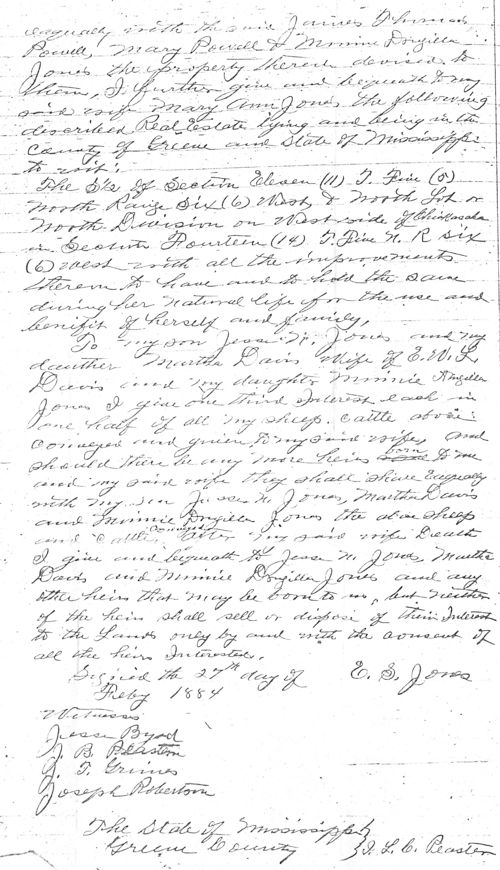 equally with the said James Thomas
Powell, Mary Powell & Minnie Drzilla
Jones the property therein devised to
them, I further give and bequeath to my
said wife Mary Ann Jones the following
described Real Estate lying and being in the
County of Greene and State of Mississippi
to wit:
The of Section Eleven (11) T. Five (5)
North Range Six (6) West, & North Lot or
North Division on West side of Chickasaha
in Section Fourteen (14) T. Five N. R six
(6) west with all the improvements
thereon to have and to hold the same
during her natural life for the use and
benefit of herself and family,
To my son Jesse N. Jones and my
dauther Martha Davis wife of E. W. L.
Davis and my daughter Minnie Drzilla
Jones I give one third interest each in
one half of all my sheep cattle above
conveyed and given to my said wife, and
should there be any more heirs born to me
and my said wife they shall share Equally
with my son Jesse N. Jones, Martha Davis
and Minnie Drzilla Jones the above sheep
and Cattle conveyed after my said wife Death
I give and bequeath to Jesse N. Jones, Martha
Davis and Minnie Drzilla Jones and any
other heirs that may be born to us, but neither
of the heirs shall sell or dispose of their Interest
to the Lands only by and with the consent of
all the heirs Interested.
Signed the 27th day of E. S. Jones
Feby 1884
Witnesses
Jesse Byrd
J. B. Peaston
J. T. Grimes
Joseph Robertson
The State of Mississippi }
Greene County } J. L. C. Peaster